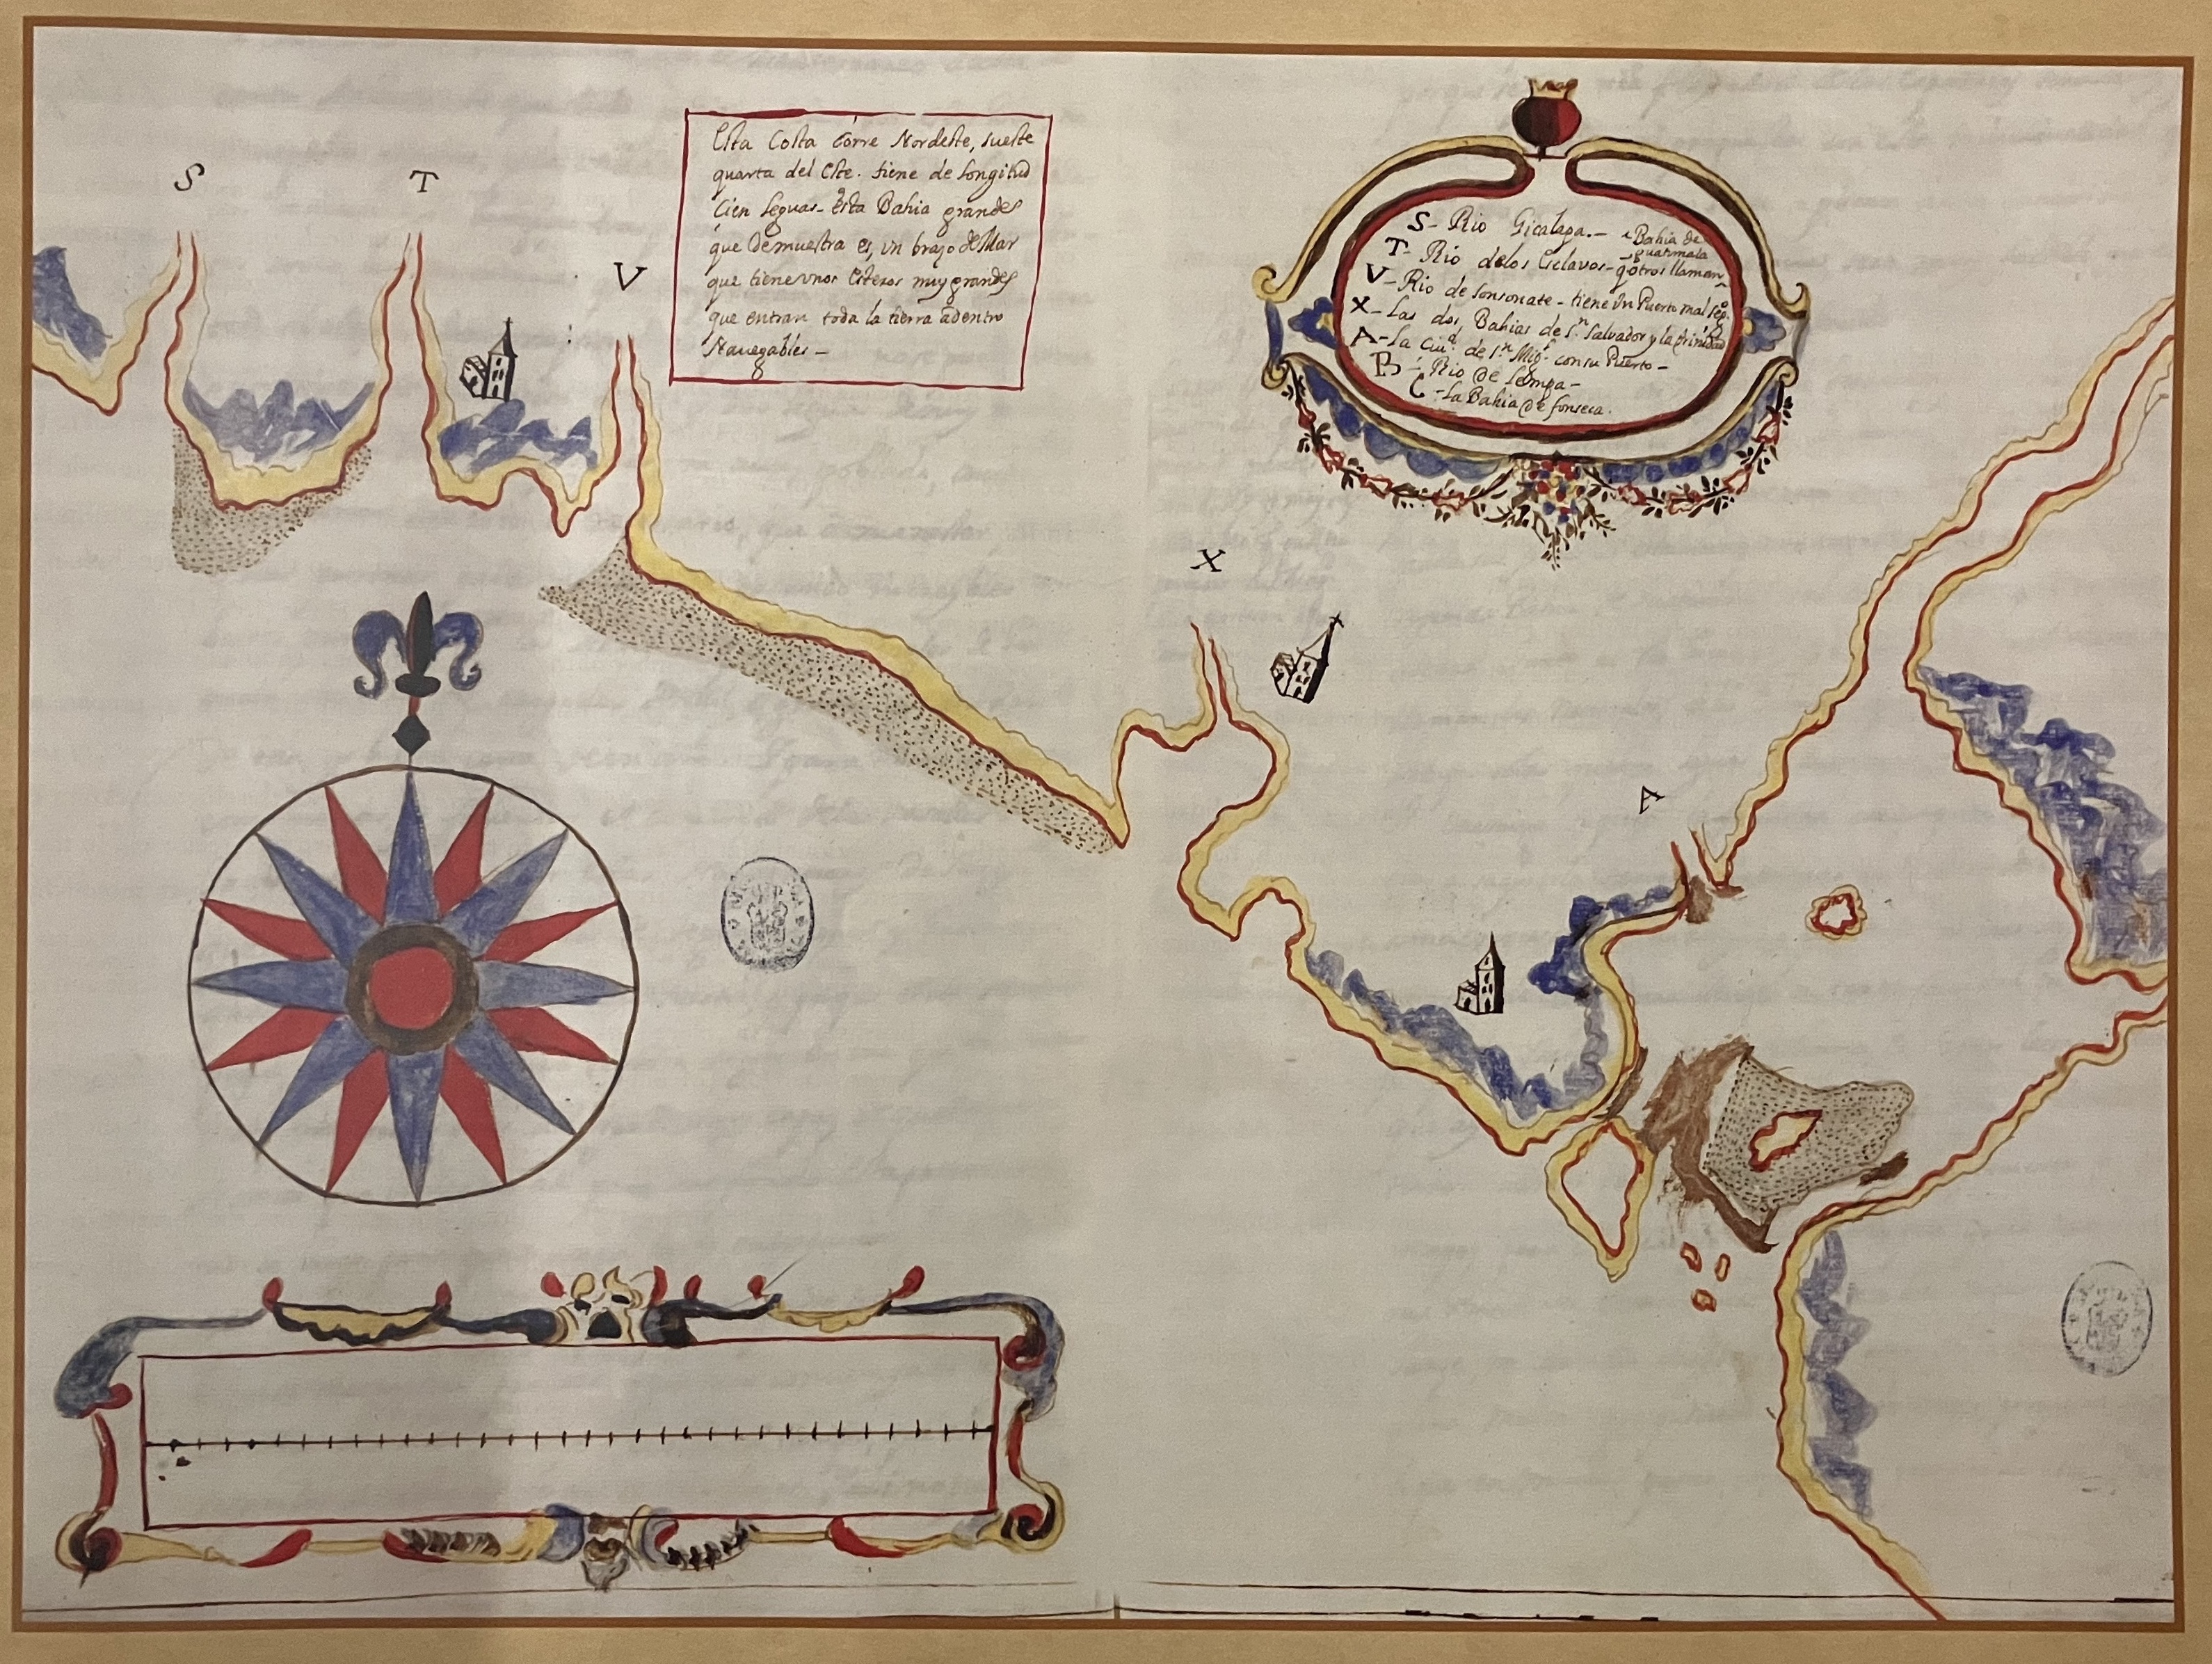 S
T
V
X
A
Esta Costa corre Nordeste, sueste
quarta del Este. tiene de Longitud
Cien Leguas. Esta Bahia grande
que Demuestra es, un brazo de Mar
que tiene unos Esteros muy grandes
que entran toda la tierra adentro
Navegables –
S – Rio Gicalapa. –
T – Rio de los Esclavos –
Bahia de
guatimala
q̃ otros llaman
V – Rio de Sonsonate – tiene Un Puerto mal seg.º
X – Las dos Bahias de S.n Salvador y la trinidad
A – La Ciu.d de S.n Mig.l con su Puerto –
B – Rio de Lempa –
C – La Bahia de fonseca.